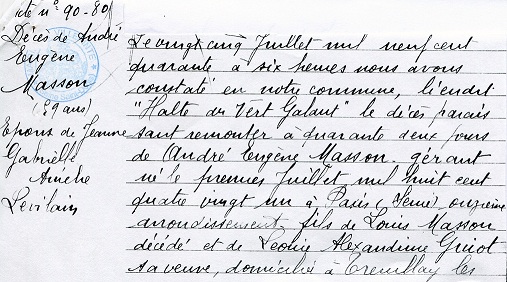 acte n° 90-80
Décès de André
Eugène
Masson
(59 ans)
Epoux de Jeanne
Gabrielle
Levilain
Le vingt cinq Juillet mil neuf cent
quarante à six heures nous avons
constaté en notre commune, lieudit
"Halte du Vert Galant" le décès parais
sant remonter à quarante deux jours
de André Eugène Masson. gérant
né le premier Juillet mil huit cent
quatre vingt un à Paris (Seine) onzième
arrondissement, fils de Louis Masson
décédé et de Léonie Alexandrine Guiot
sa veuve, domicilié à Tremblay les